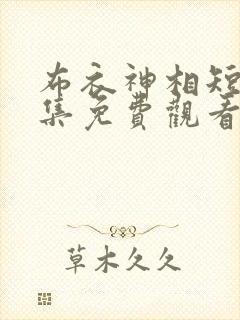 布衣神相短
集免費觀看
草木久久